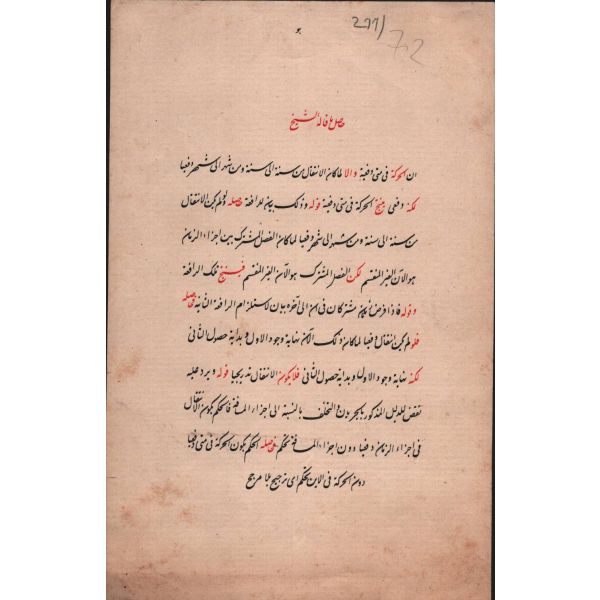 ٢٩٩/
72
حاصل ما قاله الشيخ
ان الحركة فى متى دفعية والا لما كان الانتقال من سنة الى سنة ومن شهر الى شهر دفعيا
لكنه دفعى ينتج الحركة فى متى دفعية قوله وذلك بيان للرافعة حاصله لو لم يكن الانتقال
من سنة الى سنة ومن شهر الى شهر دفعيا لما كان الفصل المشترك بين اجزاء الزمان
هو الآن الغير المنقسم لكن الفصل المشترك هو الآن الغير المنقسم فينتج تلك الرافعة
وقوله فاذا فرض زمانين مشتركان فى آن الى آخره بيان لاستلزام الرافعة الثانية حاصله
فلو لم يكن انتقال دفعيا لما كان ذلك الآن نهاية وجود الاول وبداية حصول الثانى
لكنه نهاية وجود الاول وبداية حصول الثانى فلا يكون الانتقال تدريجيا قوله ويرد عليه
نقض للدليل المذكور بالجريان والتخلف بالنسبة الى اجزاء المسافة فالحكم بكون الانتقال
فى اجزاء الزمان دفعيا دون اجزاء المسافة تحكم حاصله الحكم بكون الحركة فى متى دفعيا
دون الحركة فى الاين تحكم اى ترجيح بلا مرجح